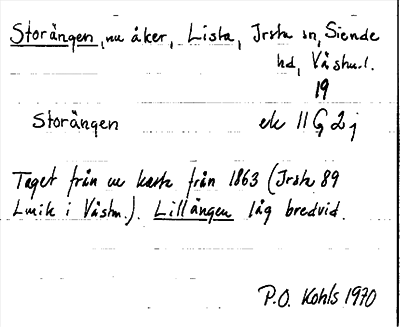 Storängen, nu åker, Lista, Irsta sn, Siende
hd, Västm.l.
19
Storängen ek 11 G 2 j
Taget från en karta från 1863 (Irsta 89
Lmk i Västm.). Lillängen låg bredvid.
P.O. Kohls 1970